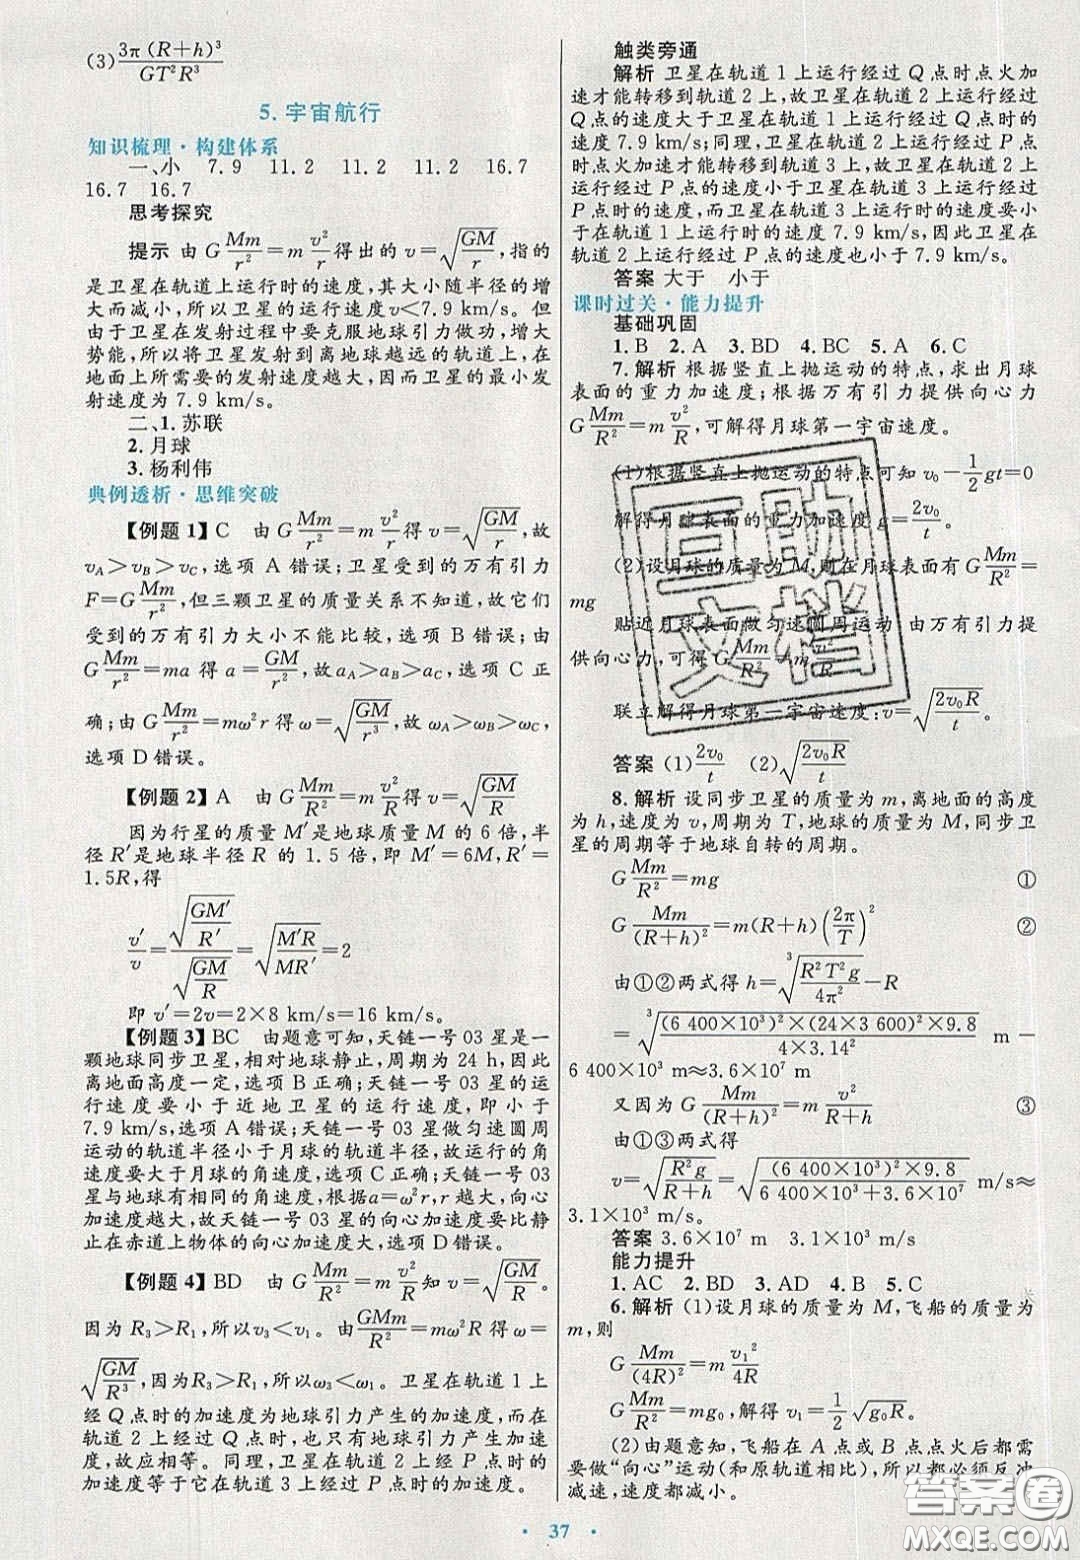 (3) 3π(R+h)³/GT²R³
5. 宇宙航行
知识梳理·构建体系
一、小 7.9 11.2 11.2 11.2 16.7
16.7 16.7
思考探究
提示 由 G Mm/r²=m v²/r 得出的 v=√(GM/r),指的
是卫星在轨道上运行时的速度,其大小随半径的增
大而减小,所以卫星的运行速度v<7.9 km/s。但
由于卫星在发射过程中要克服地球引力做功,增大
势能,所以将卫星发射到离地球越远的轨道上,在
地面上所需要的发射速度越大,因而卫星的最小发
射速度为 7.9 km/s。
二、1. 苏联
2. 月球
3. 杨利伟
典例透析·思维突破
【例题 1】 C 由 G Mm/r²=m v²/r 得 v=√(GM/r),故
vA>vB>vC,选项 A 错误;卫星受到的万有引力
F=G Mm/r²,但三颗卫星的质量关系不知道,故它们
受到的万有引力大小不能比较,选项 B 错误;由
G Mm/r²=ma 得 a=GM/r²,故 aA>aB>aC,选项 C 正
确;由 G Mm/r²=mω²r 得 ω=√(GM/r³),故 ωA>ωB>ωC,
选项 D 错误。
【例题 2】 A 由 G Mm/R²=m v²/R 得 v=√(GM/R)
因为行星的质量 M′是地球质量 M 的 6 倍,半
径 R′是地球半径 R 的 1.5 倍,即 M′=6M,R′=
1.5R,得
v′/v=√(GM′/R′)/√(GM/R)=√(M′R/MR′)=2
即 v′=2v=2×8 km/s=16 km/s。
【例题 3】 BC 由题意可知,天链一号 03 星是一
颗地球同步卫星,相对地球静止,周期为 24 h,因此
离地面高度一定,选项 B 正确;天链一号 03 星的运
行速度要小于近地卫星的运行速度,即小于
7.9 km/s,选项 A 错误;天链一号 03 星做匀速圆周
运动的轨道半径小于月球的轨道半径,故运行的角
速度要大于月球的角速度,选项 C 正确;天链一号 03
星与地球有相同的角速度,根据a=ω²r,r越大,向心
加速度越大,故天链一号 03 星的向心加速度要比静
止在赤道上物体的向心加速度大,选项 D 错误。
【例题 4】 BD 由 G Mm/R²=m v²/R 知 v=√(GM/R)。
因为 R₃>R₁,所以v₃<v₁。由 GMm/R²=mω²R 得 ω=
√(GM/R³),因为 R₃>R₁,所以ω₃<ω₁。卫星在轨道 1 上
经 Q 点时的加速度为地球引力产生的加速度,而在
轨道 2 上经过 Q 点时,也只有地球引力产生加速
度,故应相等。同理,卫星在轨道 2 上经 P 点时的
加速度等于它在轨道 3 上经过 P 点时的加速度。
触类旁通
解析 卫星在轨道 1 上运行经过 Q 点时点火加
速才能转移到轨道 2 上,故卫星在轨道 2 上运行经过
Q 点的速度大于卫星在轨道 1 上运行经过 Q 点时的
速度 7.9 km/s;同理,卫星在轨道 2 上运行经过 P 点
时点火加速才能转移到轨道 3 上,故卫星在轨道 2 上
运行经过 P 点的速度小于卫星在轨道 3 上运行经过
P 点时的速度,而卫星在轨道 3 上运行的速度要小
于在轨道 1 上运行时的速度 7.9 km/s,因此卫星在
轨道 2 上运行经过 P 点的速度也小于 7.9 km/s。
答案 大于 小于
课时过关·能力提升
基础巩固
1. B 2. A 3. BD 4. BC 5. A 6. C
7. 解析 根据竖直上抛运动的特点,求出月球
表面的重力加速度;根据万有引力提供向心力
G Mm/R²=m v²/R,可解得月球第一宇宙速度。
(1)根据竖直上抛运动的特点可知 v₀-1/2 gt=0
解得月球表面的重力加速度 g=2v₀/t。
(2)设月球的质量为M,则在月球表面有G Mm/R²=
mg
贴近月球表面做匀速圆周运动,由万有引力提
供向心力,可得G Mm/R²=m v²/R
联立解得月球第一宇宙速度:v=√(2v₀R/t)。
答案 (1)2v₀/t (2)√(2v₀R/t)
8. 解析 设同步卫星的质量为 m,离地面的高度
为 h,速度为 v,周期为 T,地球的质量为 M,同步卫
星的周期等于地球自转的周期。
G Mm/R²=mg ①
G Mm/(R+h)²=m(R+h)(2π/T)² ②
由①②两式得 h=³√(R²T²g/4π²)-R
=³√((6 400×10³)²×(24×3 600)²×9.8/4×3.14²) m-
6 400×10³ m≈3.6×10⁷ m
又因为 G Mm/(R+h)²=m v²/R+h ③
由①③两式得
v=√(R²g/R+h)=√((6 400×10³)²×9.8/6 400×10³+3.6×10⁷) m/s≈
3.1×10³ m/s。
答案 3.6×10⁷ m 3.1×10³ m/s
能力提升
1. AC 2. BD 3. AD 4. B 5. C
6. 解析 (1)设月球的质量为 M,飞船的质量为
m,则
G Mm/(4R)²=m v₁²/4R
G Mm/R²=mg₀,解得 v₁=1/2 √(g₀R)。
(2)由题意知,飞船在 A 点或 B 点点火后都需
要做“向心”运动(和原轨道相比),所以都必须反冲
减速,速度都减小。
37
互助
文档
答案圈
MXQE.COM